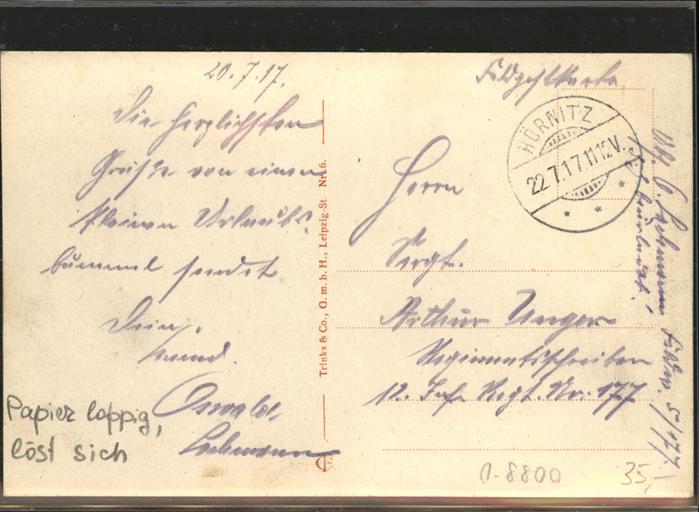 20.7.17.
Die herzlichsten
Grüße von einem
kleinen Urlaubs-
bummel sendet
Dein
Freund
Oswald
Lachmann
Papier lappig,
löst sich
Trinks & Co., G. m. b. H., Leipzig-St. Nr. 6.
Feldpostkarte
HÖRNITZ
22.7.17.11-12V.
Herrn
Sergt.
Arthur Unger
Regimentsschreiber
12. Inf. Regt. Nr. 177
beurlaubt.
0-8800
35,-